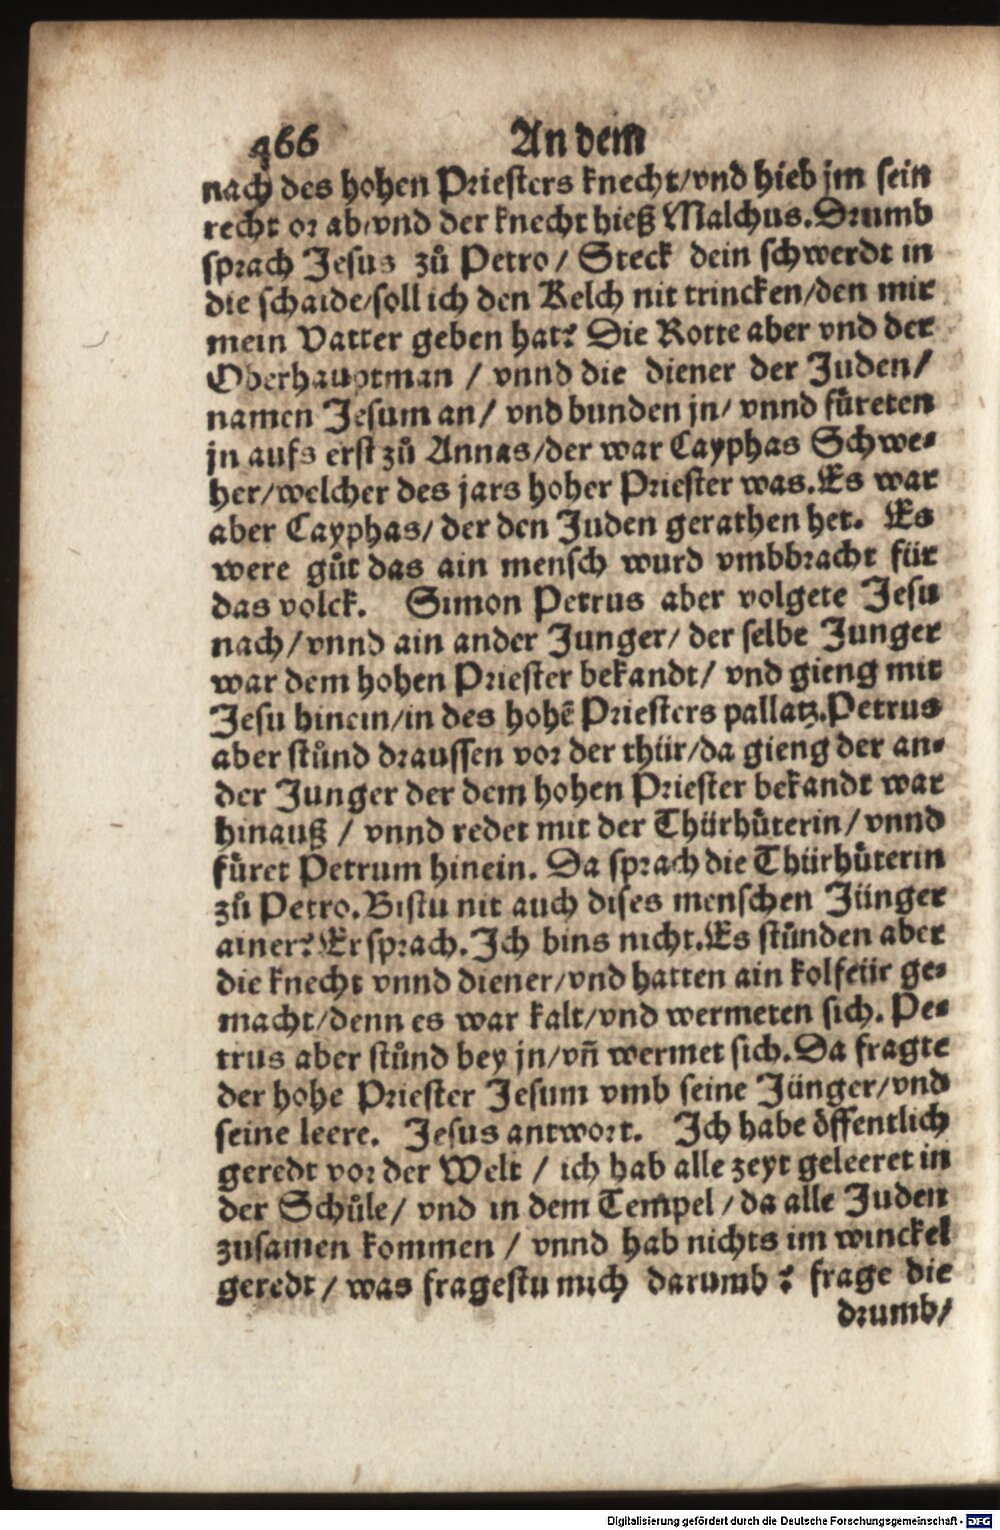 466 An dem
nach des hohen Priesters knecht/vnd hieb jm sein
recht or ab/vnd der knecht hieß Malchus.Drumb
sprach Jesus zů Petro/ Steck dein schwerdt in
die schaide/soll ich den Kelch nit trincken/den mir
mein Vatter geben hat? Die Rotte aber vnd der
Oberhauptman / vnnd die diener der Juden/
namen Jesum an/ vnd bunden jn/ vnnd fůreten
jn aufs erst zů Annas/der war Cayphas Schwe-
her/welcher des jars hoher Priester was.Es war
aber Cayphas/ der den Juden gerathen het. Es
were gůt das ain mensch wurd vmbbracht für
das volck. Simon Petrus aber volgete Jesu
nach/vnnd ain ander Junger/ der selbe Junger
war dem hohen Priester bekandt/ vnd gieng mit
Jesu hinein/in des hohẽ Priesters pallatz.Petrus
aber stůnd draussen vor der thür/da gieng der an-
der Junger der dem hohen Priester bekandt war
hinauß / vnnd redet mit der Thürhůterin/vnnd
fůret Petrum hinein. Da sprach die Thürhůterin
zů Petro.Bistu nit auch dises menschen Jünger
ainer?Er sprach.Ich bins nicht.Es stůnden aber
die knecht vnnd diener/vnd hatten ain kolfeür ge-
macht/denn es war kalt/vnd wermeten sich. Pe-
trus aber stůnd bey jn/vñ wermet sich.Da fragte
der hohe Priester Jesum vmb seine Jünger/vnd
seine leere. Jesus antwort. Ich habe öffentlich
geredt vor der Welt / ich hab alle zeyt geleeret in
der Schůle/ vnd in dem Tempel/da alle Juden
zusamen kommen / vnnd hab nichts im winckel
geredt/ was fragestu mich darumb? frage die
drumb/
Digitalisierung gefördert durch die Deutsche Forschungsgemeinschaft - DFG